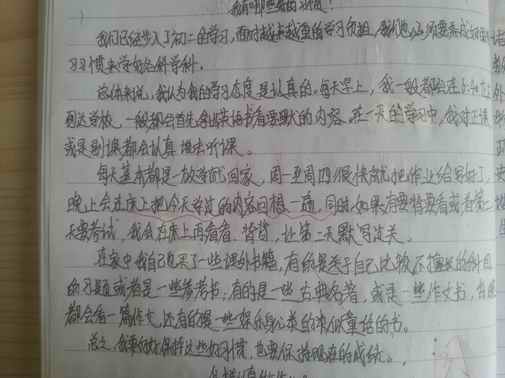 我有哪些好的习惯!
我们已经步入了初二的学习,面对越来越重的学习负担,我们必须要养成好的
习惯来学好各科学科。
总体来说,我认为我的学习态度是认真的。每天早上,我一般都会在
到达学校,一般都会首先拿出英语书看要默的内容。在一天的学习中,我对正课
或是副课都会认真地去听课。
每天基本都是一放学就回家,周一至周四很快就把作业给写好了,
晚上会在床上把今天学过的内容回想一遍,同时如果有要背要看或者第二
天要考试,我会在床上再看看、背背,让第二天默写过关。
在家中我自己买了一些课外书籍,有的是关于自己比较不擅长的科目
的习题或者是一些参考书,有的是一些古典名著,或是一些作文书,
都会看一篇作文,还有的是一些娱乐身心类的
总之,我要好好保持这些好习惯,也要保持现在的成绩。